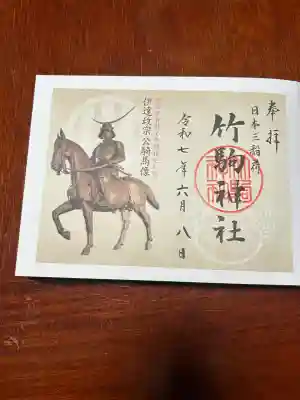 奉拝
日本三稲荷
竹駒神社
令和七年六月八日
伊達政宗公騎馬像